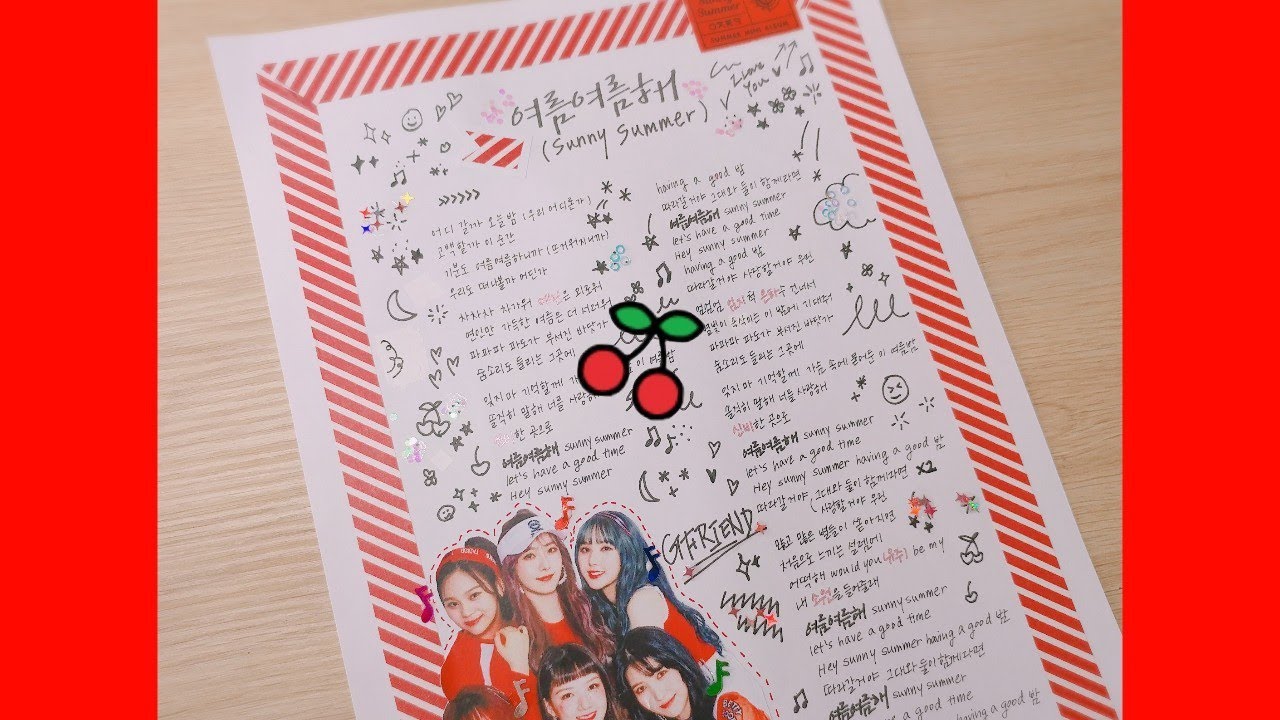 Sunny
Summer
SUMMER MINI ALBUM
I Love
You
여름여름해
(Sunny Summer)
어디 갈까 오늘밤 (우리 어디든가)
고백할까 이 순간
기분도 여름여름하니까 (뜨거워지니까)
우리도 떠나볼까 어딘가
차차차 차가워 은 피로워
연인만 가득한 여름은 더 서러워
파파파 파도가 부서진 바닷가
숨소리도 들리는 그곳에
잊지마 기억할게 이 여름밤
솔직히 말해 너를 사랑해
한 곳으로
여름여름해 sunny summer
let's have a good time
Hey sunny summer
having a good 밤
따라갈거야 그대와 둘이 함께라면
여름여름해 sunny summer
let's have a good time
Hey sunny summer
having a good 밤
따라갈거야 사랑할거야 우린
엄지 척 은하수 건너서
별빛이 속삭이는 이 밤에 기대워
파파파 파도가 부서진 바닷가
숨소리도 들리는 그곳에
잊지마 기억할게 가슴 속에 불어온 이 여름밤
솔직히 말해 너를 사랑해
신비한 곳으로
여름여름해 sunny summer
let's have a good time
Hey sunny summer having a good 밤
따라갈거야, 그대와 둘이 함께라면 x2
(사랑할거야 우린
많고 많은 별들이 쏟아지면
처음으로 느끼는 설렘에
어떡해 would you (유주) be my
내 소원을 들어줄래
여름여름해 sunny summer
let's have a good time
Hey sunny summer having a good 밤
따라갈거야 그대와 둘이 함께라면
여름여름해 sunny summer
have a good time
having a good 밤
GFRIEND